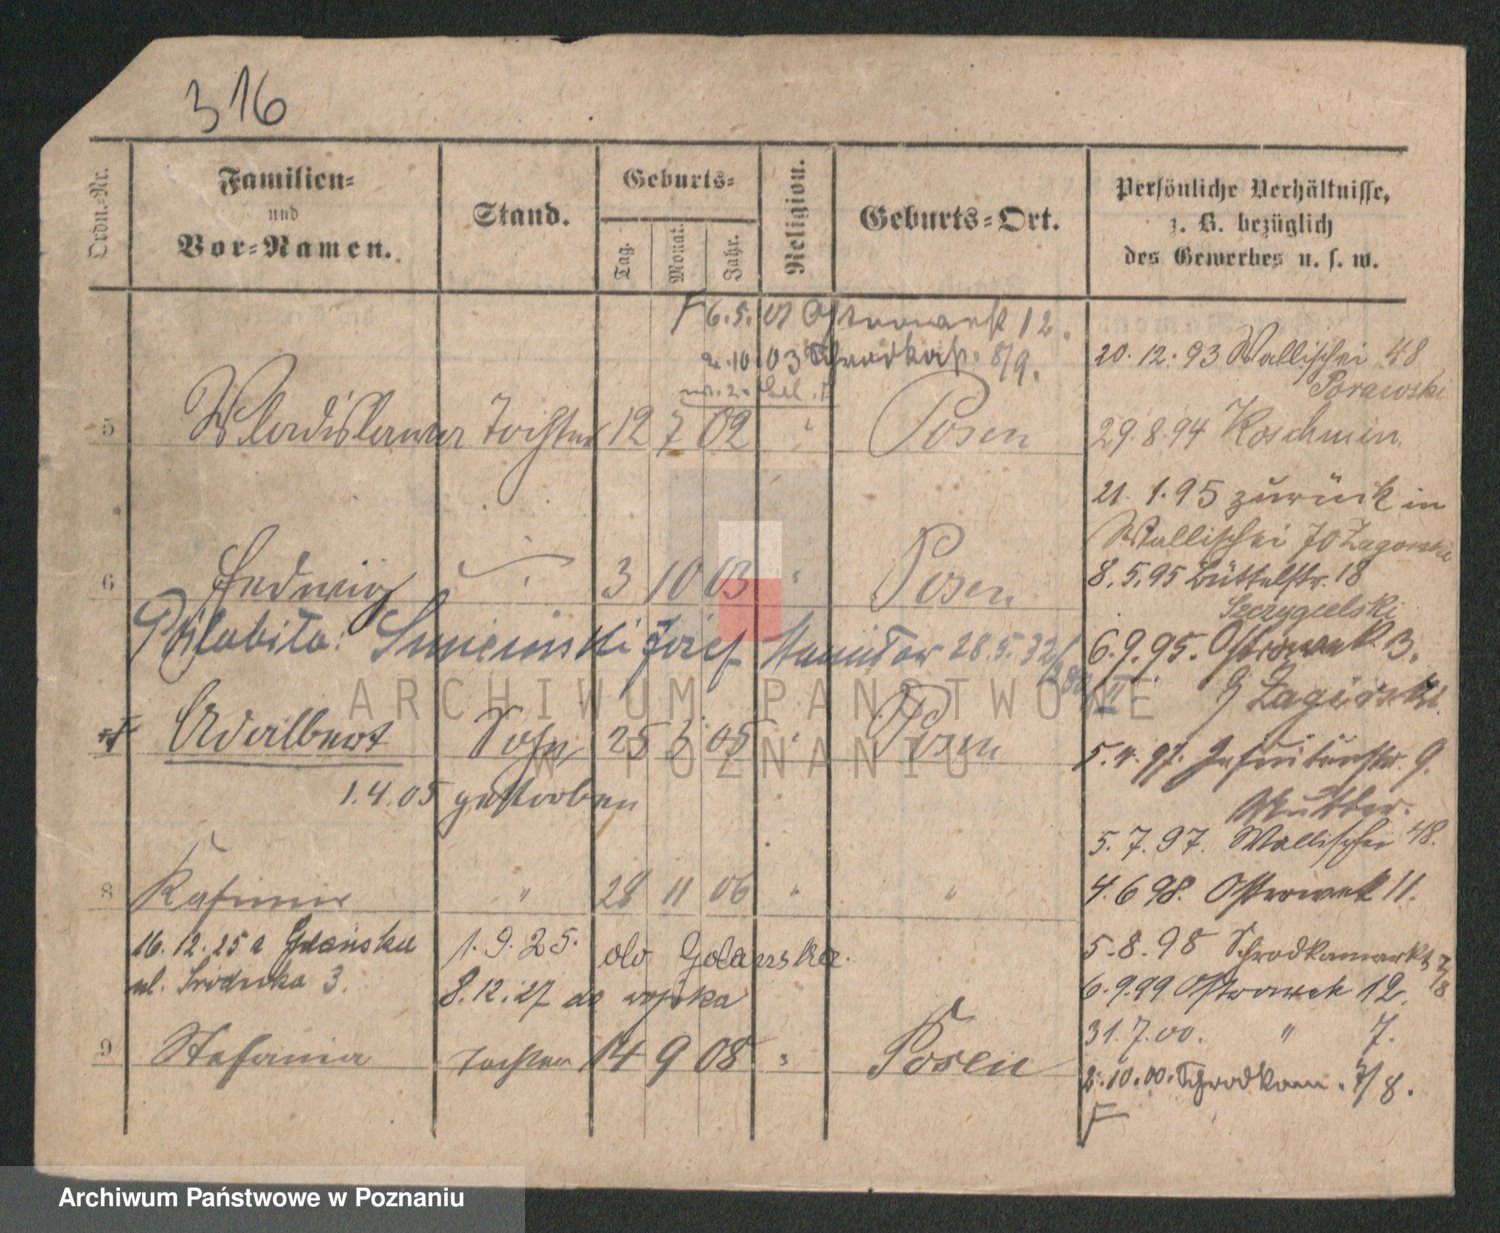 316
Ordn.-Nr.
Familien-
und
Vor-Namen.
Stand.
Geburts-
Tag.
Monat.
Jahr.
Religion.
Geburts-Ort.
Persönliche Verhältnisse,
z. B. bezüglich
des Gewerbes u. s. w.
6.5.01 Ostrowek 12.
2.10.03 Schrodkaplatz 8/9.
5 Wladislawa Tochter 12 7 02 " Posen
6 Hedwig " 3 10 03 " Posen
Józef 28.5.32
Adalbert Sohn 25 3 05 " Posen
1.4.05 gestorben
8 Kasimir " 28 11 06 " "
16.12.25 z Gdańska
ul. Śródka 3.
1.9.25. do Gdańska.
8.12.27 do wojska
9 Stefania Tochter 14 9 08 " Posen
20.12.93 Wallischei 48
Porawski
29.8.94 Koschmin
21.1.95 zurück in
Wallischei 70 Zagorski
8.5.95 Büttelstr. 18
Szczygielski
6.9.95. Ostrowek 13.
Zagórski
5.4.97. Jesuitenstr. 9.
Mutter.
5.7.97. Wallischei 48.
4.6.98. Ostrowek 11.
5.8.98 Schrodkamarkt 7/8
6.9.99 Ostrowek 12.
31.7.00. " 7.
2.10.00. Schrodkam. 7/8.
ARCHIWUM PAŃSTWOWE
W POZNANIU
Archiwum Państwowe w Poznaniu